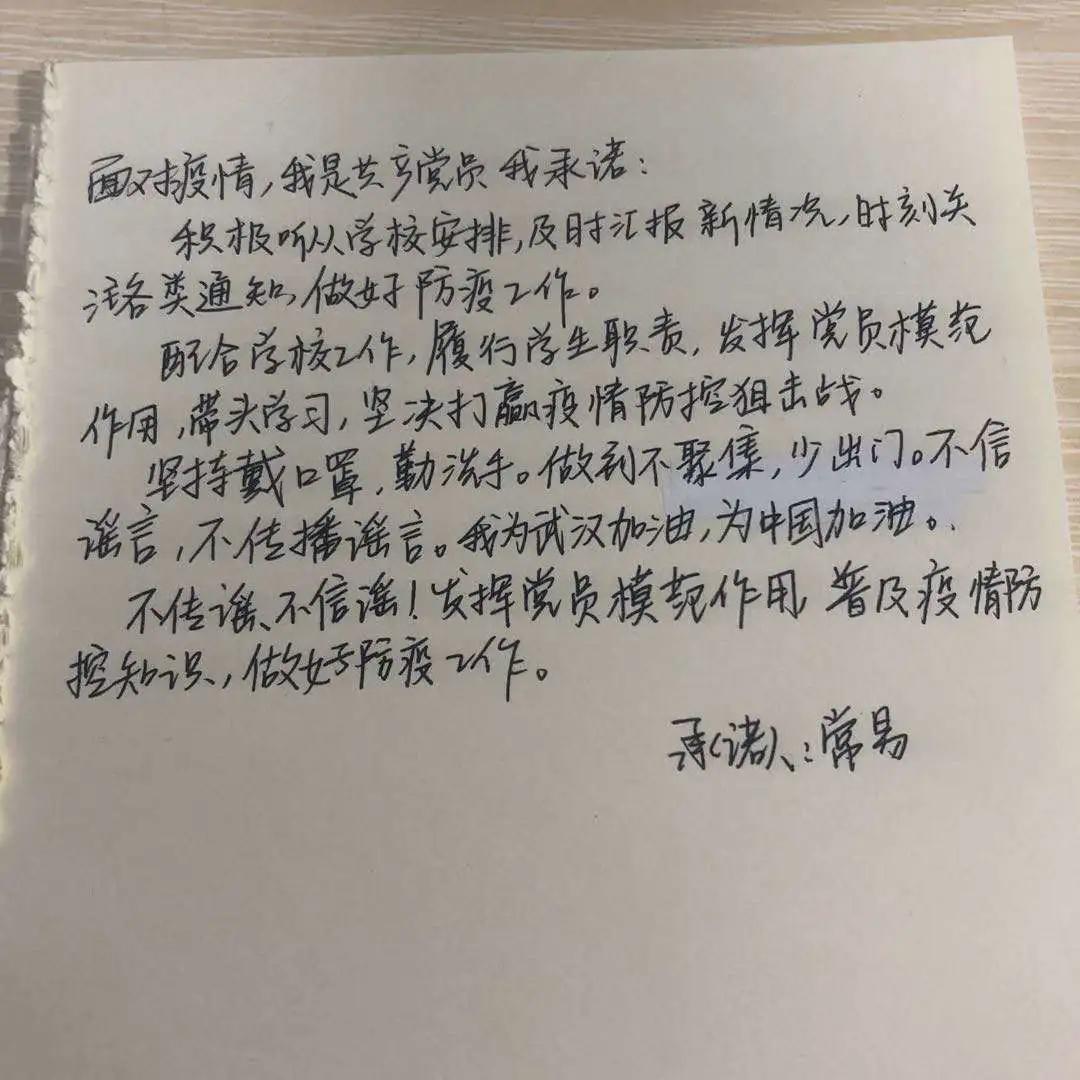 面对疫情,我是共产党员 我承诺:
积极听从学校安排,及时汇报新情况,时刻关
注各类通知,做好防疫工作。
配合学校工作,履行学生职责,发挥党员模范
作用,带头学习,坚决打赢疫情防控狙击战。
坚持戴口罩,勤洗手。做到不聚集,少出门。不信
谣言,不传播谣言。我为武汉加油,为中国加油。
不传谣、不信谣!发挥党员模范作用,普及疫情防
控知识,做好防疫工作。
承诺人:常易